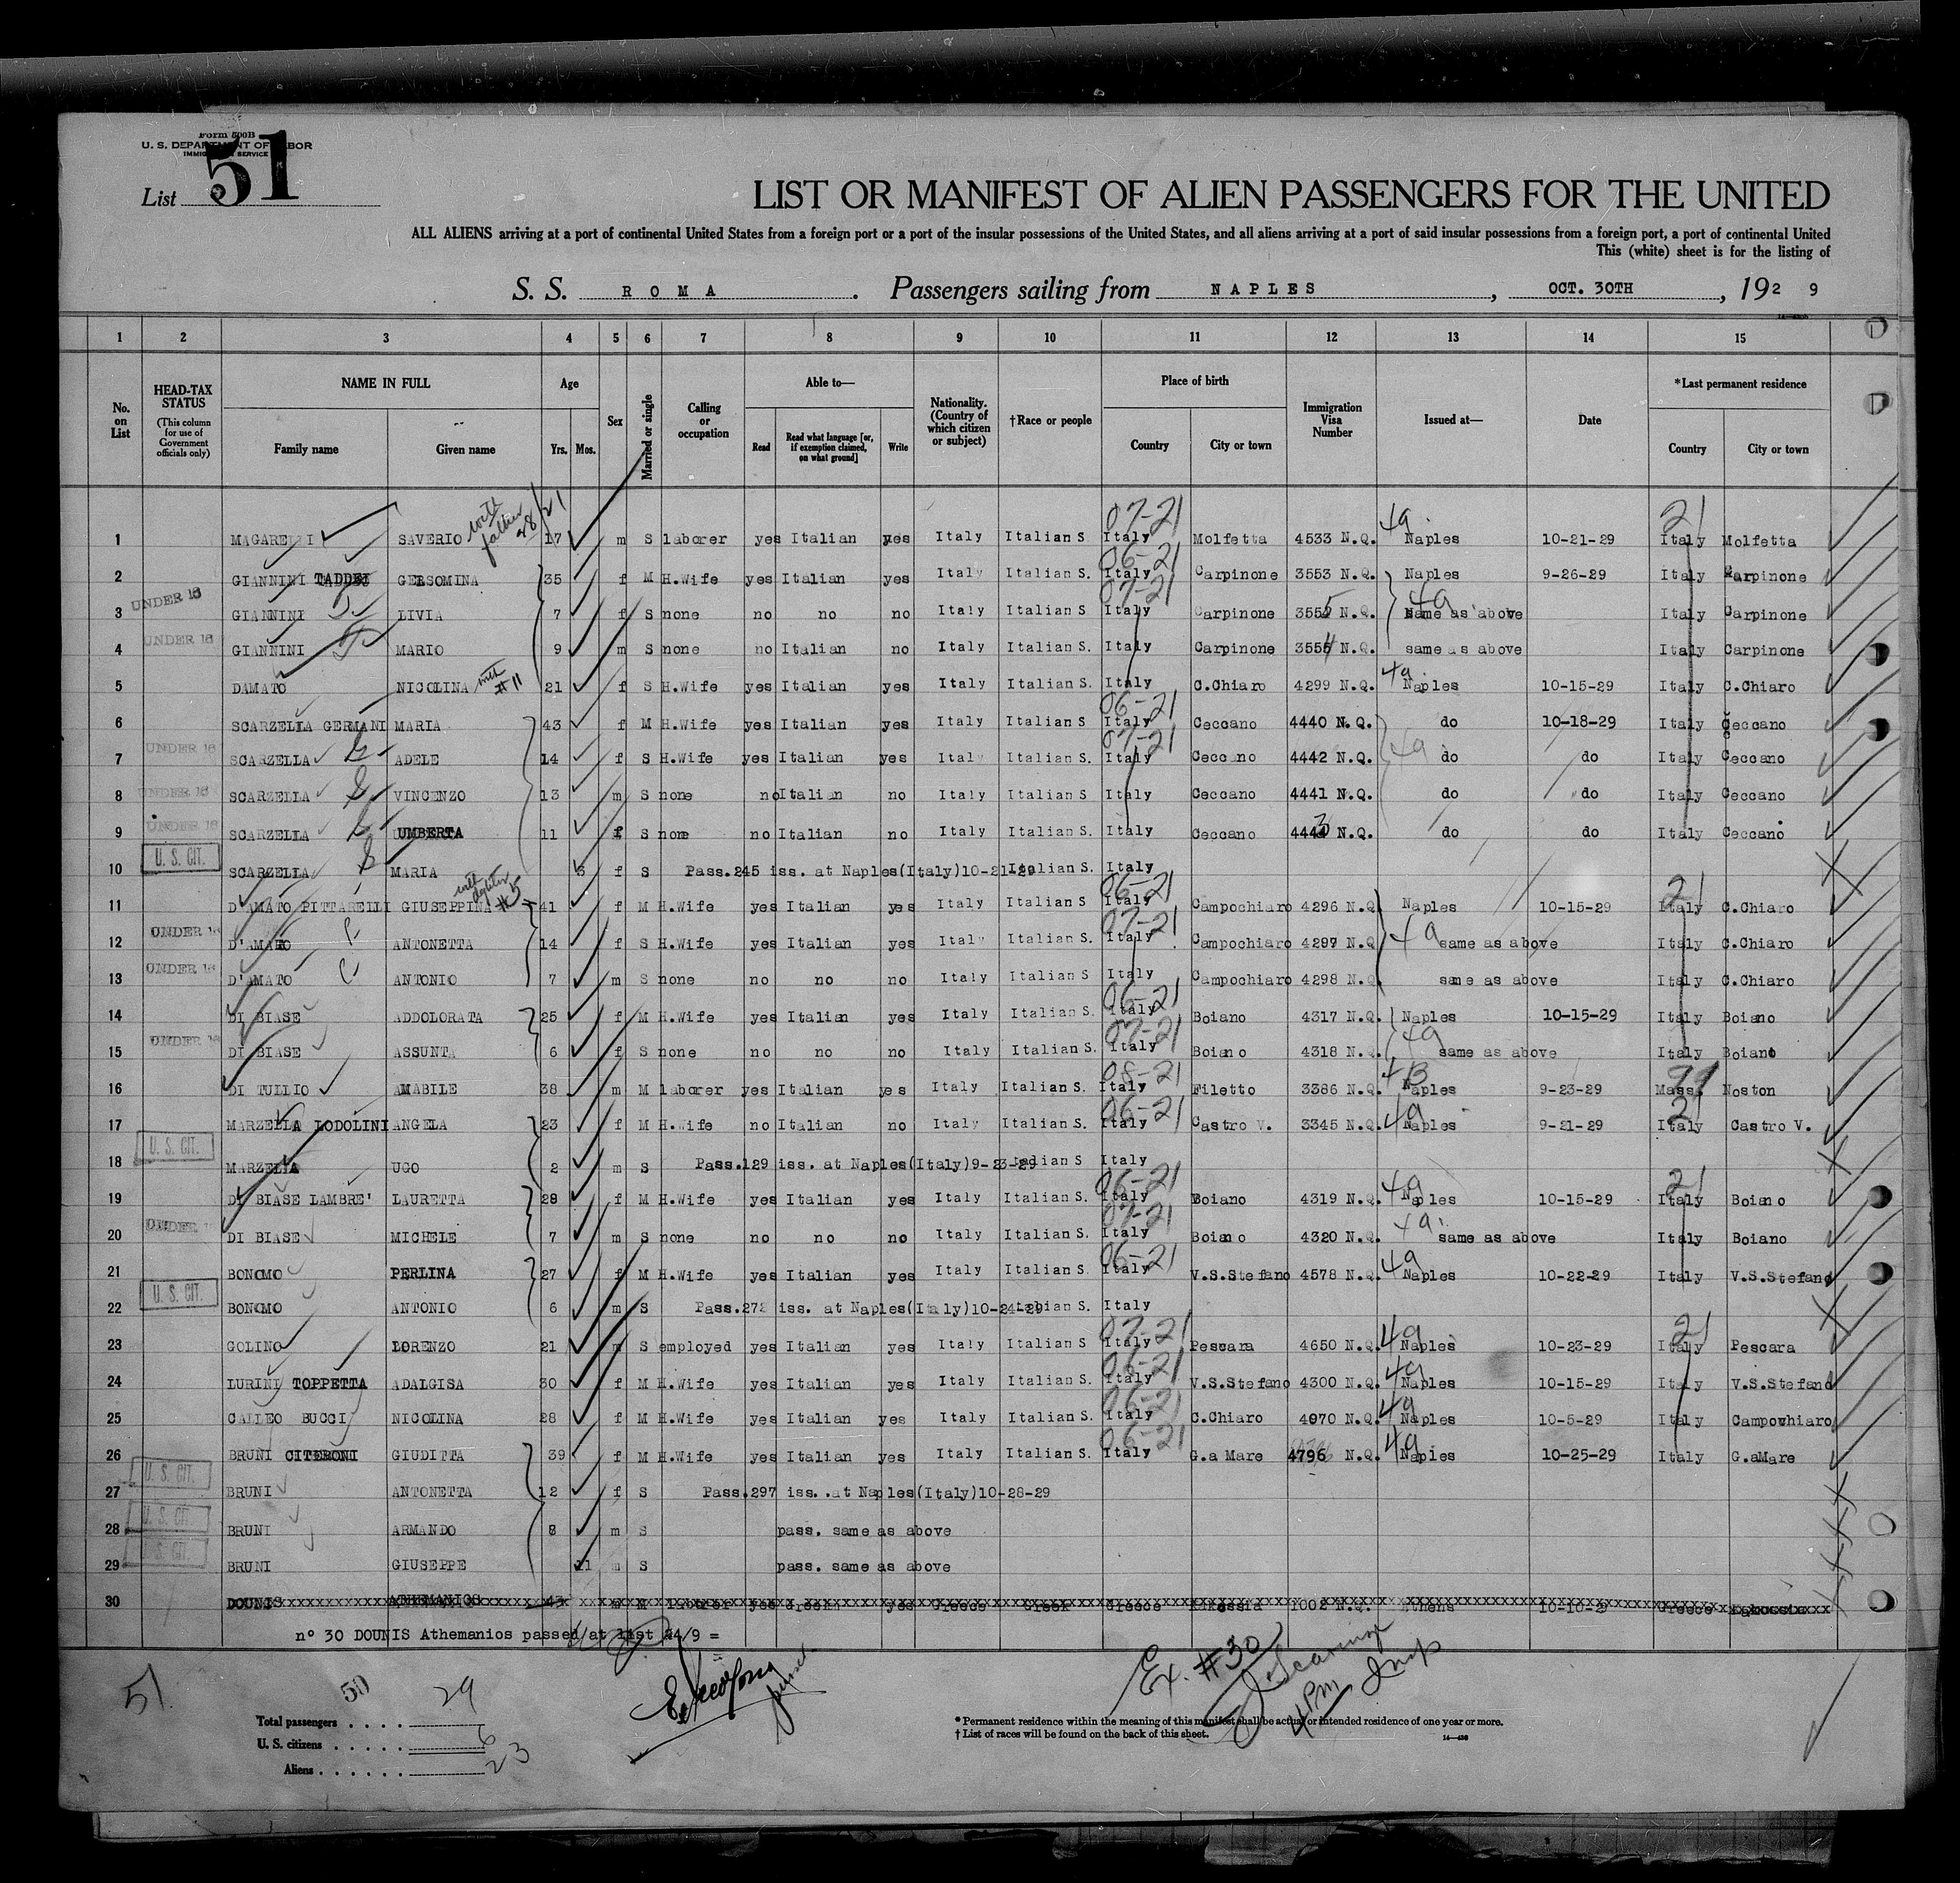 Form 500B
U. S. DEPARTMENT OF LABOR
IMMIGRATION SERVICE
List 51
LIST OR MANIFEST OF ALIEN PASSENGERS FOR THE UNITED
ALL ALIENS arriving at a port of continental United States from a foreign port or a port of the insular possessions of the United States, and all aliens arriving at a port of said insular possessions from a foreign port, a port of continental United
This (white) sheet is for the listing of
S. S. ROMA. Passengers sailing from NAPLES, OCT. 30TH, 192 9
1 2 3 4 5 6 7 8 9 10 11 12 13 14 15
No. on List
HEAD-TAX STATUS (This column for use of Government officials only)
NAME IN FULL Family name Given name
Age Yrs. Mos.
Sex
Married or single
Calling or occupation
Able to— Read Read what language [or, if exemption claimed, on what ground] Write
Nationality. (Country of which citizen or subject)
†Race or people
Place of birth Country City or town
Immigration Visa Number
Issued at—
Date
*Last permanent residence Country City or town
1 MAGARELLI SAVERIO with father 28/21 17 m S laborer yes Italian yes Italy Italian S 07-21 Italy Molfetta 4533 N.Q. 4a Naples 10-21-29 21 Italy Molfetta
2 GIANNINI TADDEI GERSOMINA 35 f M H.Wife yes Italian yes Italy Italian S. 06-21 Italy Carpinone 3553 N.Q. Naples 9-26-29 Italy Carpinone
3 UNDER 16 GIANNINI T. LIVIA 7 f S none no no no Italy Italian S 07-21 Italy Carpinone 3555 N.Q. 4a Same as above Italy Carpinone
4 UNDER 16 GIANNINI T. MARIO 9 m S none no Italian no Italy Italian S. Italy Carpinone 3554 N.Q. same as above Italy Carpinone
5 DAMATO NICOLINA with #11 21 f S H.Wife yes Italian yes Italy Italian S. Italy C.Chiaro 4299 N.Q. 4a Naples 10-15-29 Italy C.Chiaro
6 SCARZELLA GERMANI MARIA 43 f M H.Wife yes Italian yes Italy Italian S 06-21 Italy Ceccano 4440 N.Q. do 10-18-29 Italy Ceccano
7 UNDER 16 SCARZELLA G. ADELE 14 f S H.Wife yes Italian yes Italy Italian S. 07-21 Italy Ceccano 4442 N.Q. 4a do do Italy Ceccano
8 UNDER 16 SCARZELLA G. VINCENZO 13 m S none no Italian no Italy Italian S Italy Ceccano 4441 N.Q. do do Italy Ceccano
9 UNDER 16 SCARZELLA G. UMBERTA 11 f S none no Italian no Italy Italian S. Italy Ceccano 4443 N.Q. do do Italy Ceccano
10 U. S. CIT. SCARZELLA G MARIA 3 f S Pass.245 iss. at Naples(Italy)10-21-29 Italian S. Italy
11 D'AMATO PITTARELLI GIUSEPPINA with #5 41 f M H.Wife yes Italian yes Italy Italian S 06-21 Italy Campochiaro 4296 N.Q. Naples 10-15-29 21 Italy C.Chiaro
12 UNDER 16 D'AMATO P. ANTONETTA 14 f S H.Wife yes Italian yes Italy Italian S. 07-21 Italy Campochiaro 4297 N.Q. 4a same as above Italy C.Chiaro
13 UNDER 16 D'AMATO P. ANTONIO 7 m S none no no no Italy Italian S Italy Campochiaro 4298 N.Q. same as above Italy C.Chiaro
14 DI BIASE ADDOLORATA 25 f M H.Wife yes Italian yes Italy Italian S. 06-21 Italy Boiano 4317 N.Q. Naples 10-15-29 Italy Boiano
15 UNDER 16 DI BIASE ASSUNTA 6 f S none no no no Italy Italian S. 07-21 Italy Boiano 4318 N.Q. 4a same as above Italy Boiano
16 DI TULLIO AMABILE 38 m M laborer yes Italian yes Italy Italian S. 08-21 Italy Filetto 3386 N.Q. 4B Naples 9-23-29 Mass. Noston
17 MARZELLA LODOLINI ANGELA 23 f M H.Wife no Italian no Italy Italian S. 06-21 Italy Castro V. 3345 N.Q. 4a Naples 9-21-29 21 Italy Castro V.
18 U. S. CIT. MARZELLA UGO 2 m S Pass.129 iss. at Naples(Italy)9-23-29 Italian S Italy
19 DI BIASE LAMBRE' LAURETTA 28 f M H.Wife yes Italian yes Italy Italian S. 06-21 Italy Boiano 4319 N.Q. 4a Naples 10-15-29 21 Italy Boiano
20 UNDER DI BIASE MICHELE 7 m S none no no no Italy Italian S. 07-21 Italy Boiano 4320 N.Q. 4a same as above Italy Boiano
21 BONOMO PERLINA 27 f M H.Wife yes Italian yes Italy Italian S. 06-21 Italy V.S.Stefano 4578 N.Q. 4a Naples 10-22-29 Italy V.S.Stefano
22 U. S. CIT. BONOMO ANTONIO 6 m S Pass.272 iss. at Naples(Italy)10-24-29 Italian S. Italy
23 GOLINO LORENZO 21 m S employed yes Italian yes Italy Italian S 07-21 Italy Pescara 4650 N.Q. 4a Naples 10-23-29 21 Italy Pescara
24 LURINI TOPPETTA ADALGISA 30 f M H.Wife yes Italian yes Italy Italian S. 06-21 Italy V.S.Stefano 4300 N.Q. 4a Naples 10-15-29 Italy V.S.Stefano
25 CALLEO BUCCI NICOLINA 28 f M H.Wife yes Italian yes Italy Italian S. 06-21 Italy C.Chiaro 4070 N.Q. 4a Naples 10-5-29 Italy Campowhiaro
26 BRUNI CITERONI GIUDITTA 39 f M H.Wife yes Italian yes Italy Italian S. 06-21 Italy G.a Mare 4796 N.Q. 4a Naples 10-25-29 Italy G.aMare
27 U. S. CIT. BRUNI ANTONETTA 12 f S Pass.297 iss. at Naples(Italy)10-28-29
28 U. S. CIT. BRUNI ARMANDO 8 m S pass. same as above
29 U. S. CIT. BRUNI GIUSEPPE 11 m S pass. same as above
30 DOUNIS ATHEMANIOS 43 m M laborer yes Greek yes Greece Greek Greece 1002 N.Q. Athens 10-10-29 Greece
n° 30 DOUNIS Athemanios passed at list 24/9 =
51 50 29
Total passengers
U. S. citizens 6
Aliens 23
Ex. #30
4 PM Insp
* Permanent residence within the meaning of this manifest shall be actual or intended residence of one year or more.
† List of races will be found on the back of this sheet.